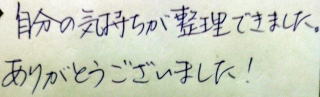 自分の気持ちが整理できました。
ありがとうございました!